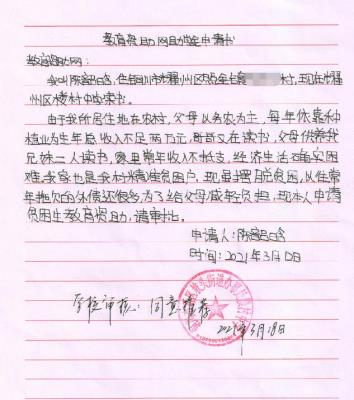 教育资助网助学申请书
教育资助网：
我叫陈 ，住铜川市耀州区 村，现在耀
州区楼村中心读书。
由于我所居住地在农村，父母以务农为主，每年依靠种
植业为生年总收入不足两万元，哥哥又在读书，父母供养我
兄妹二人读书，家里常年收入不抵支，经济生活确实困
难，我家也是我村精准贫困户，现虽摆脱贫困，从往常
年拖欠的外债还很多，为了给父母减轻负担，现本人申请
贫困生教育资助，请审批。
申请人：陈
时间：2021年3月 日
学校审核：同意推荐
2021年3月18日